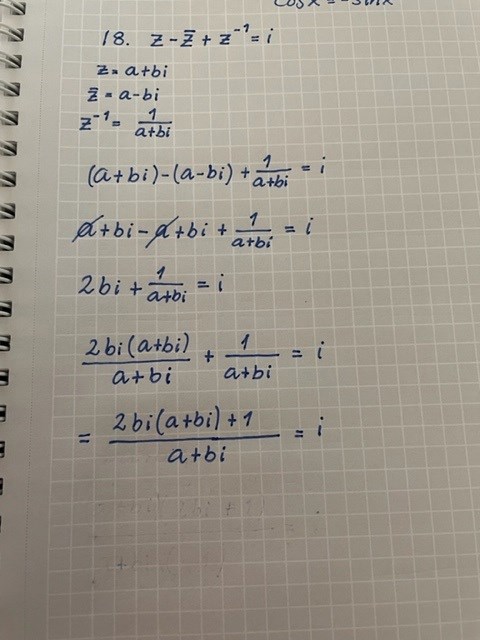 cos x = -sin x
18. z - z̄ + z⁻¹ = i
z = a+bi
z̄ = a-bi
z⁻¹ = 1/(a+bi)
(a+bi)-(a-bi) + 1/(a+bi) = i
a+bi-a+bi + 1/(a+bi) = i
2bi + 1/(a+bi) = i
2bi(a+bi)/(a+bi) + 1/(a+bi) = i
= (2bi(a+bi)+1)/(a+bi) = i